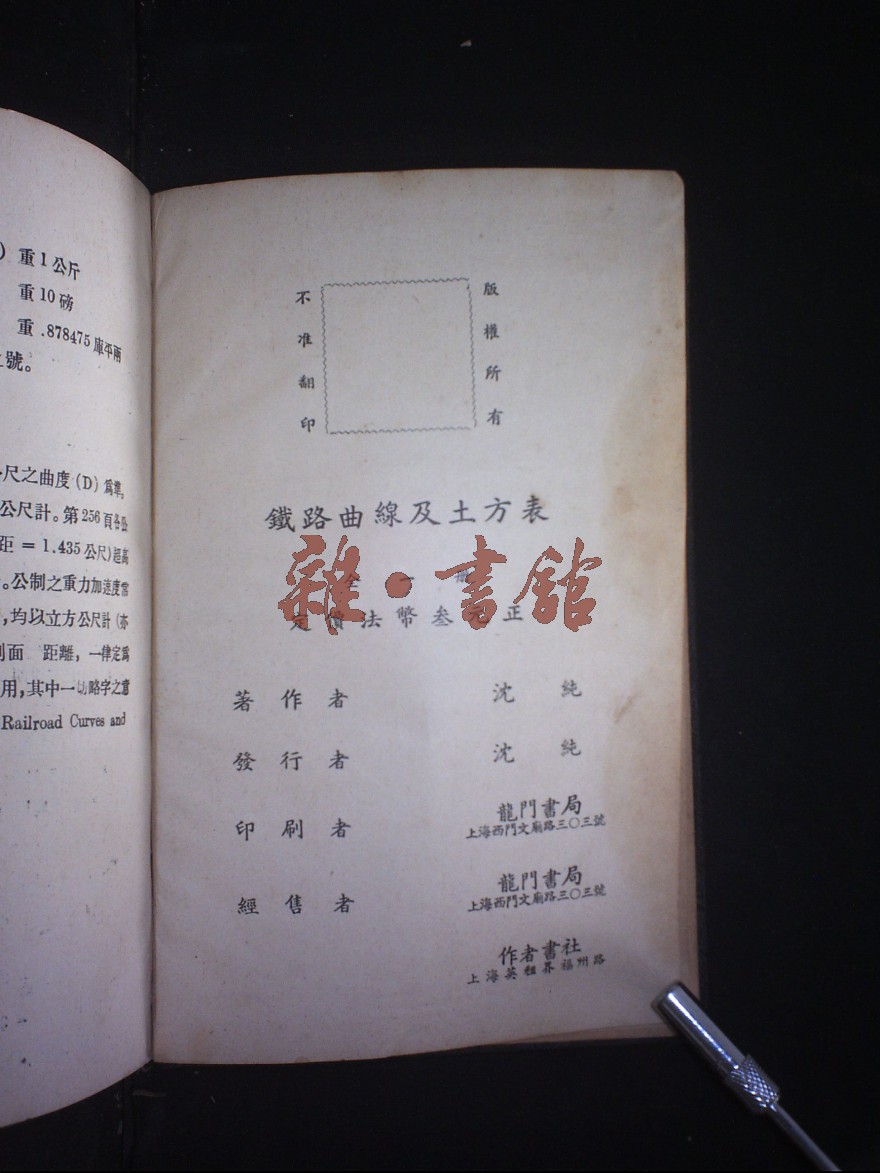 ) 重1公斤
重10磅
重 .878475庫平兩
號。
尺之曲度(D)爲準,
公尺計。第256頁各公
距 = 1.435公尺)超高
。公制之重力加速度常
,均以立方公尺計(亦
面 距離,一律定爲
用,其中一切略字之意
Railroad Curves and
版權所有
不准翻印
鐵路曲線及土方表
全一冊
定價法幣叁元正
雜·書館
著作者 沈純
發行者 沈純
印刷者 龍門書局
上海西門文廟路三〇三號
經售者 龍門書局
上海西門文廟路三〇三號
作者書社
上海英租界福州路